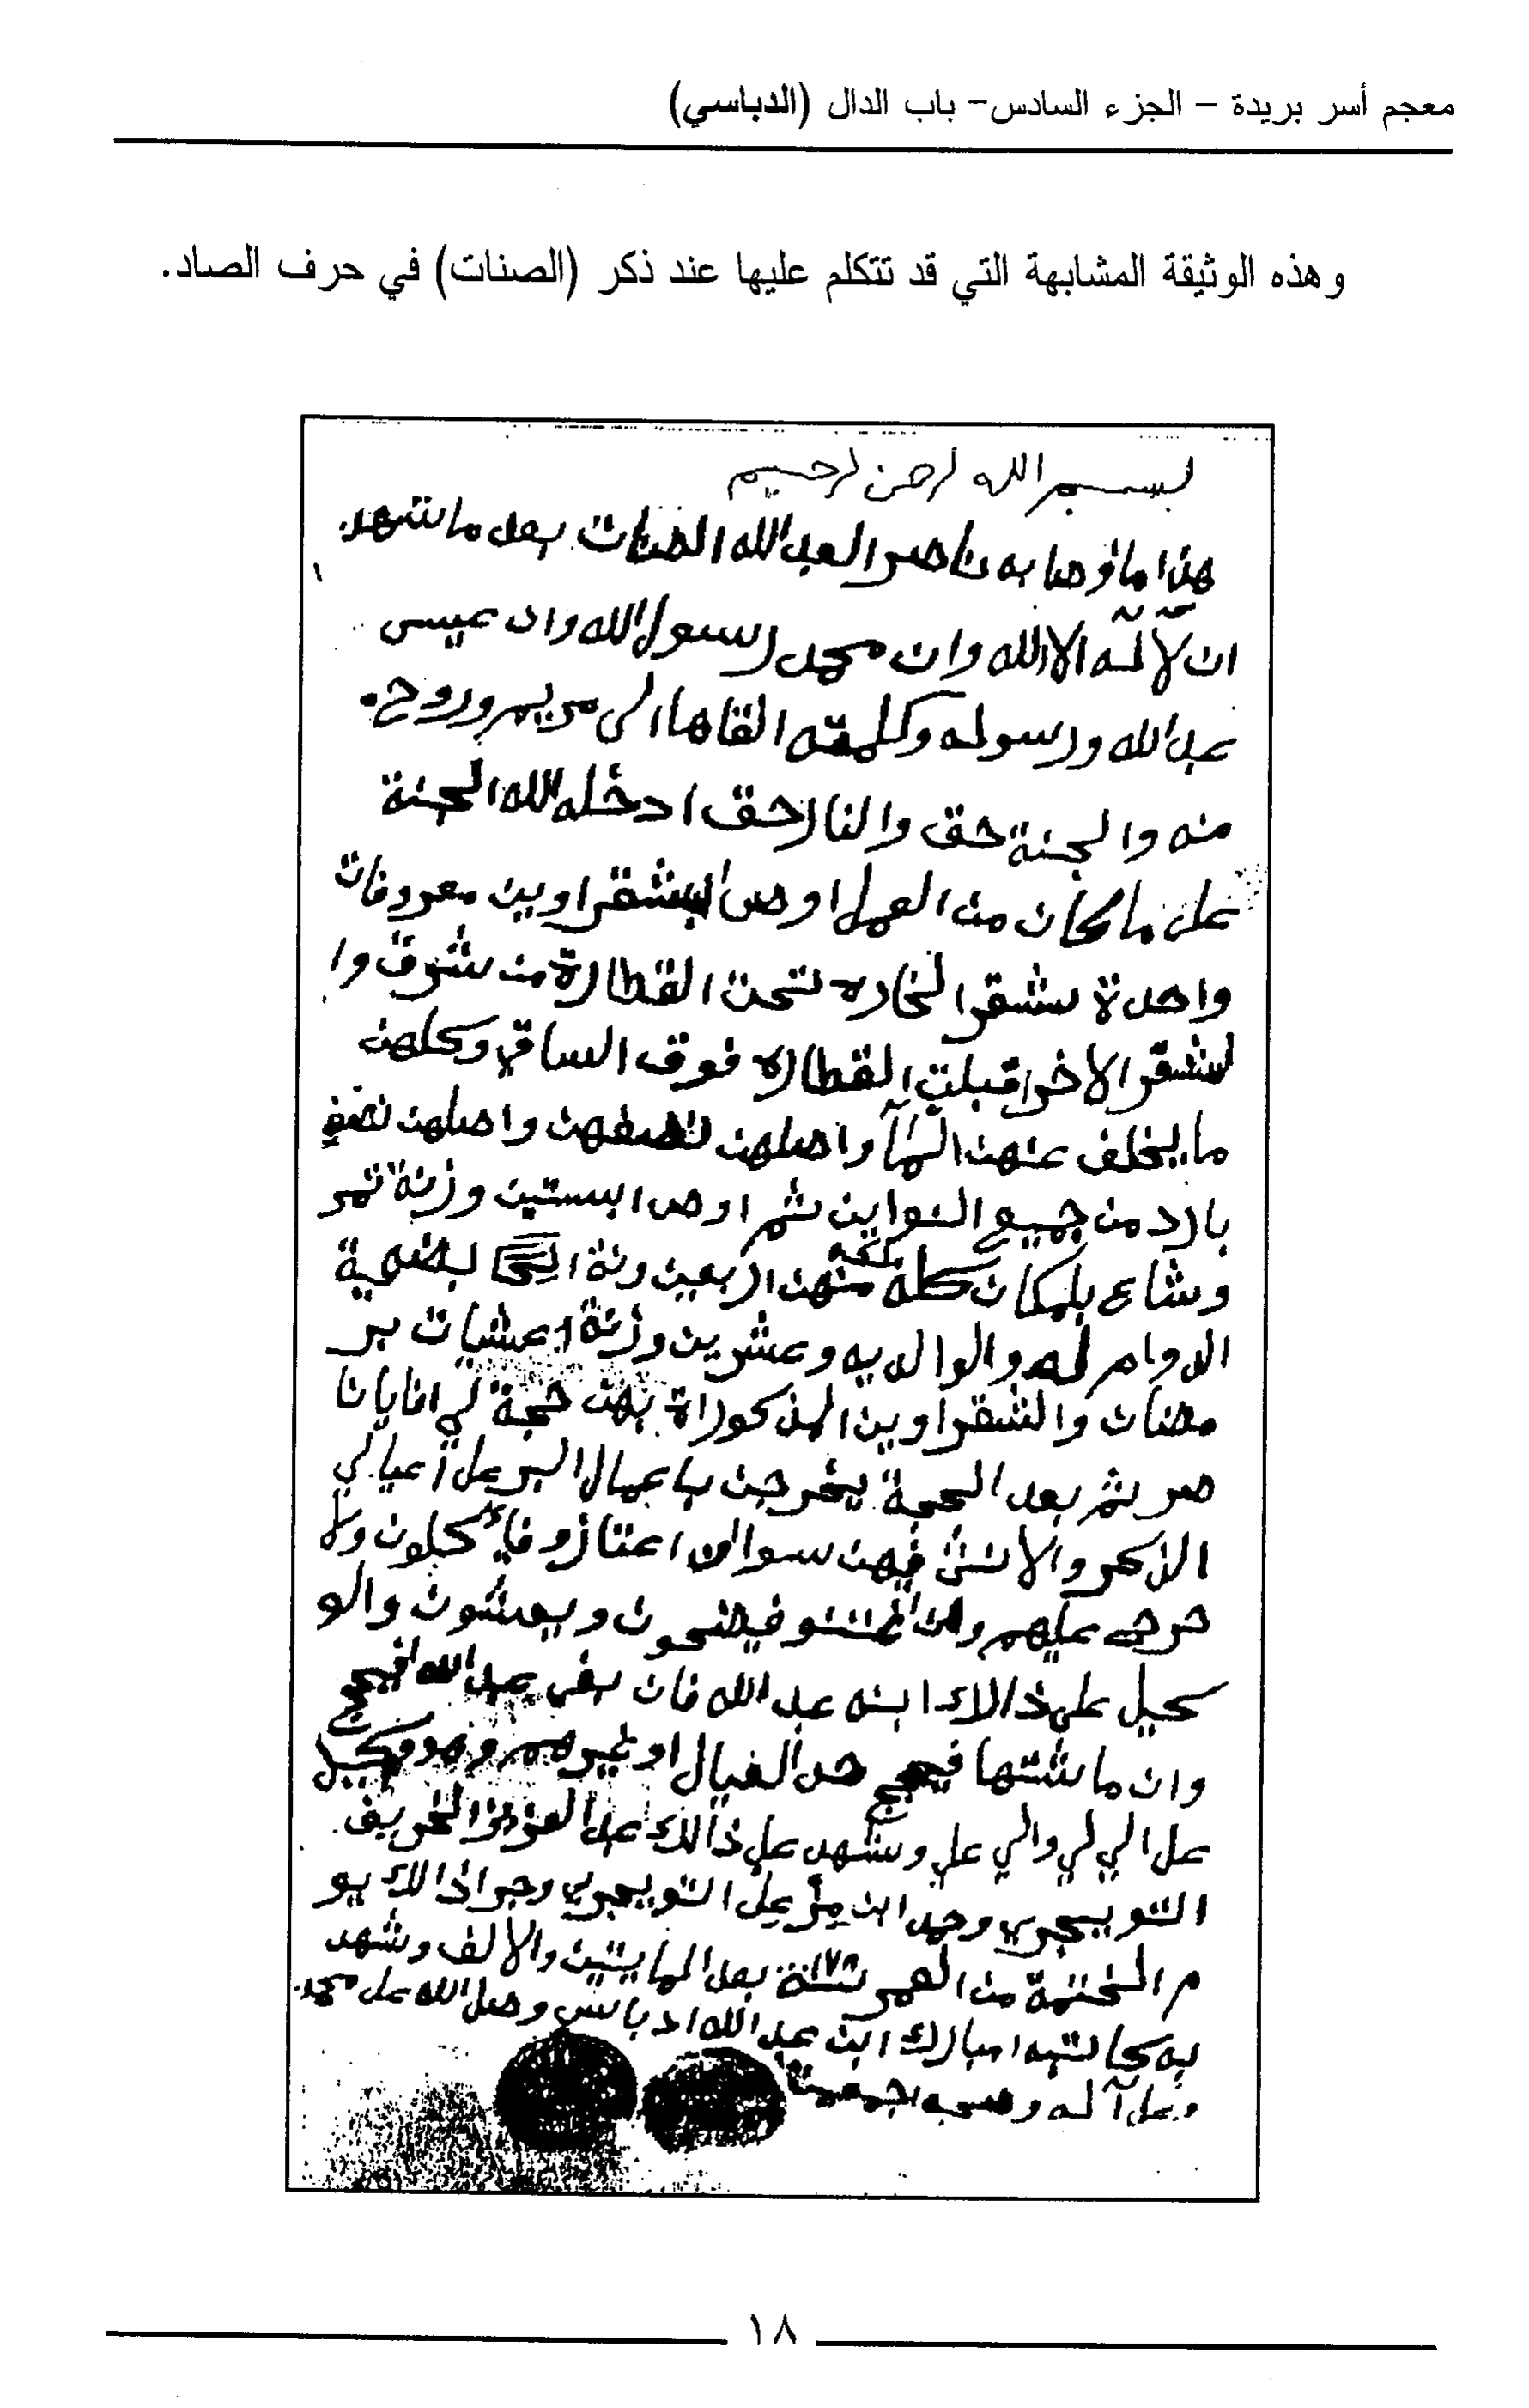 معجم أسر بريدة – الجزء السادس– باب الدال (الدباسي)
وهذه الوثيقة المشابهة التي قد تتكلم عليها عند ذكر (الصنات) في حرف الصاد.
بسم الله لرحمن لرحيم
هذا ما أوصا به ناصر العبد الله الصنات بعد ما شهد
ان لآ آله الا الله وان محمد رسول الله وان عيسى
عبد الله ورسوله وكلمته القاها الى مريم وروح
منه والجنة حق والنار حق ادخله الله الجنة
على ما كان من العمل اوصى ابشقراوين معروفات
واحدة شقرا لخاره تحت القطارة من شرق وا
لشقر الاخرا قبلت القطاره فوق الساقي وكلهن
ما يخلف عنهن المآ واصلهن نصفهن واصلهن
بارد من جميع النوايب ثم اوصى ابستين وزنة تمر
وشاع بلمكان منهن اربعين وزنة
الدوام له والوالديه وعشرين وزنة اعشيات بر
مضان والشقراوين المذكوراة بهن حجة
صر ثم بعد الحجة يخرجن باعمال البر على اعيالي
الذكر والانثى فيهن سوا وان اعتازو فايكلون ولا
حرج عليهم وان فيضحون ويعشون والو
كيل على ذالك ابنه عبد الله فان بغى عبد الله فيحج
وان ما شتها فيحج احد العيال او غيرهم وهو وكيل
على الي لي والي علي وشهد على ذالك عبد العزيز الخريف
التويجري وحمد ابن علي التويجري وجرا ذالك يو
م الختمة من العمر سنة ١٢٧٥ بعد المايتين والالف وشهد
به كاتبه امبارك ابن عبد الله ادباسي وصلى الله على محمد
وعلى آله وصحبه اجمعين
١٨